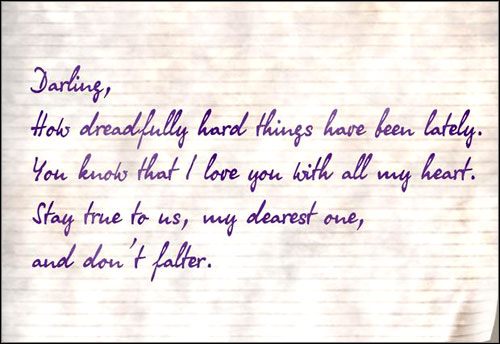 Darling,
How dreadfully hard things have been lately.
You know that I love you with all my heart.
Stay true to us, my dearest one,
and don't falter.